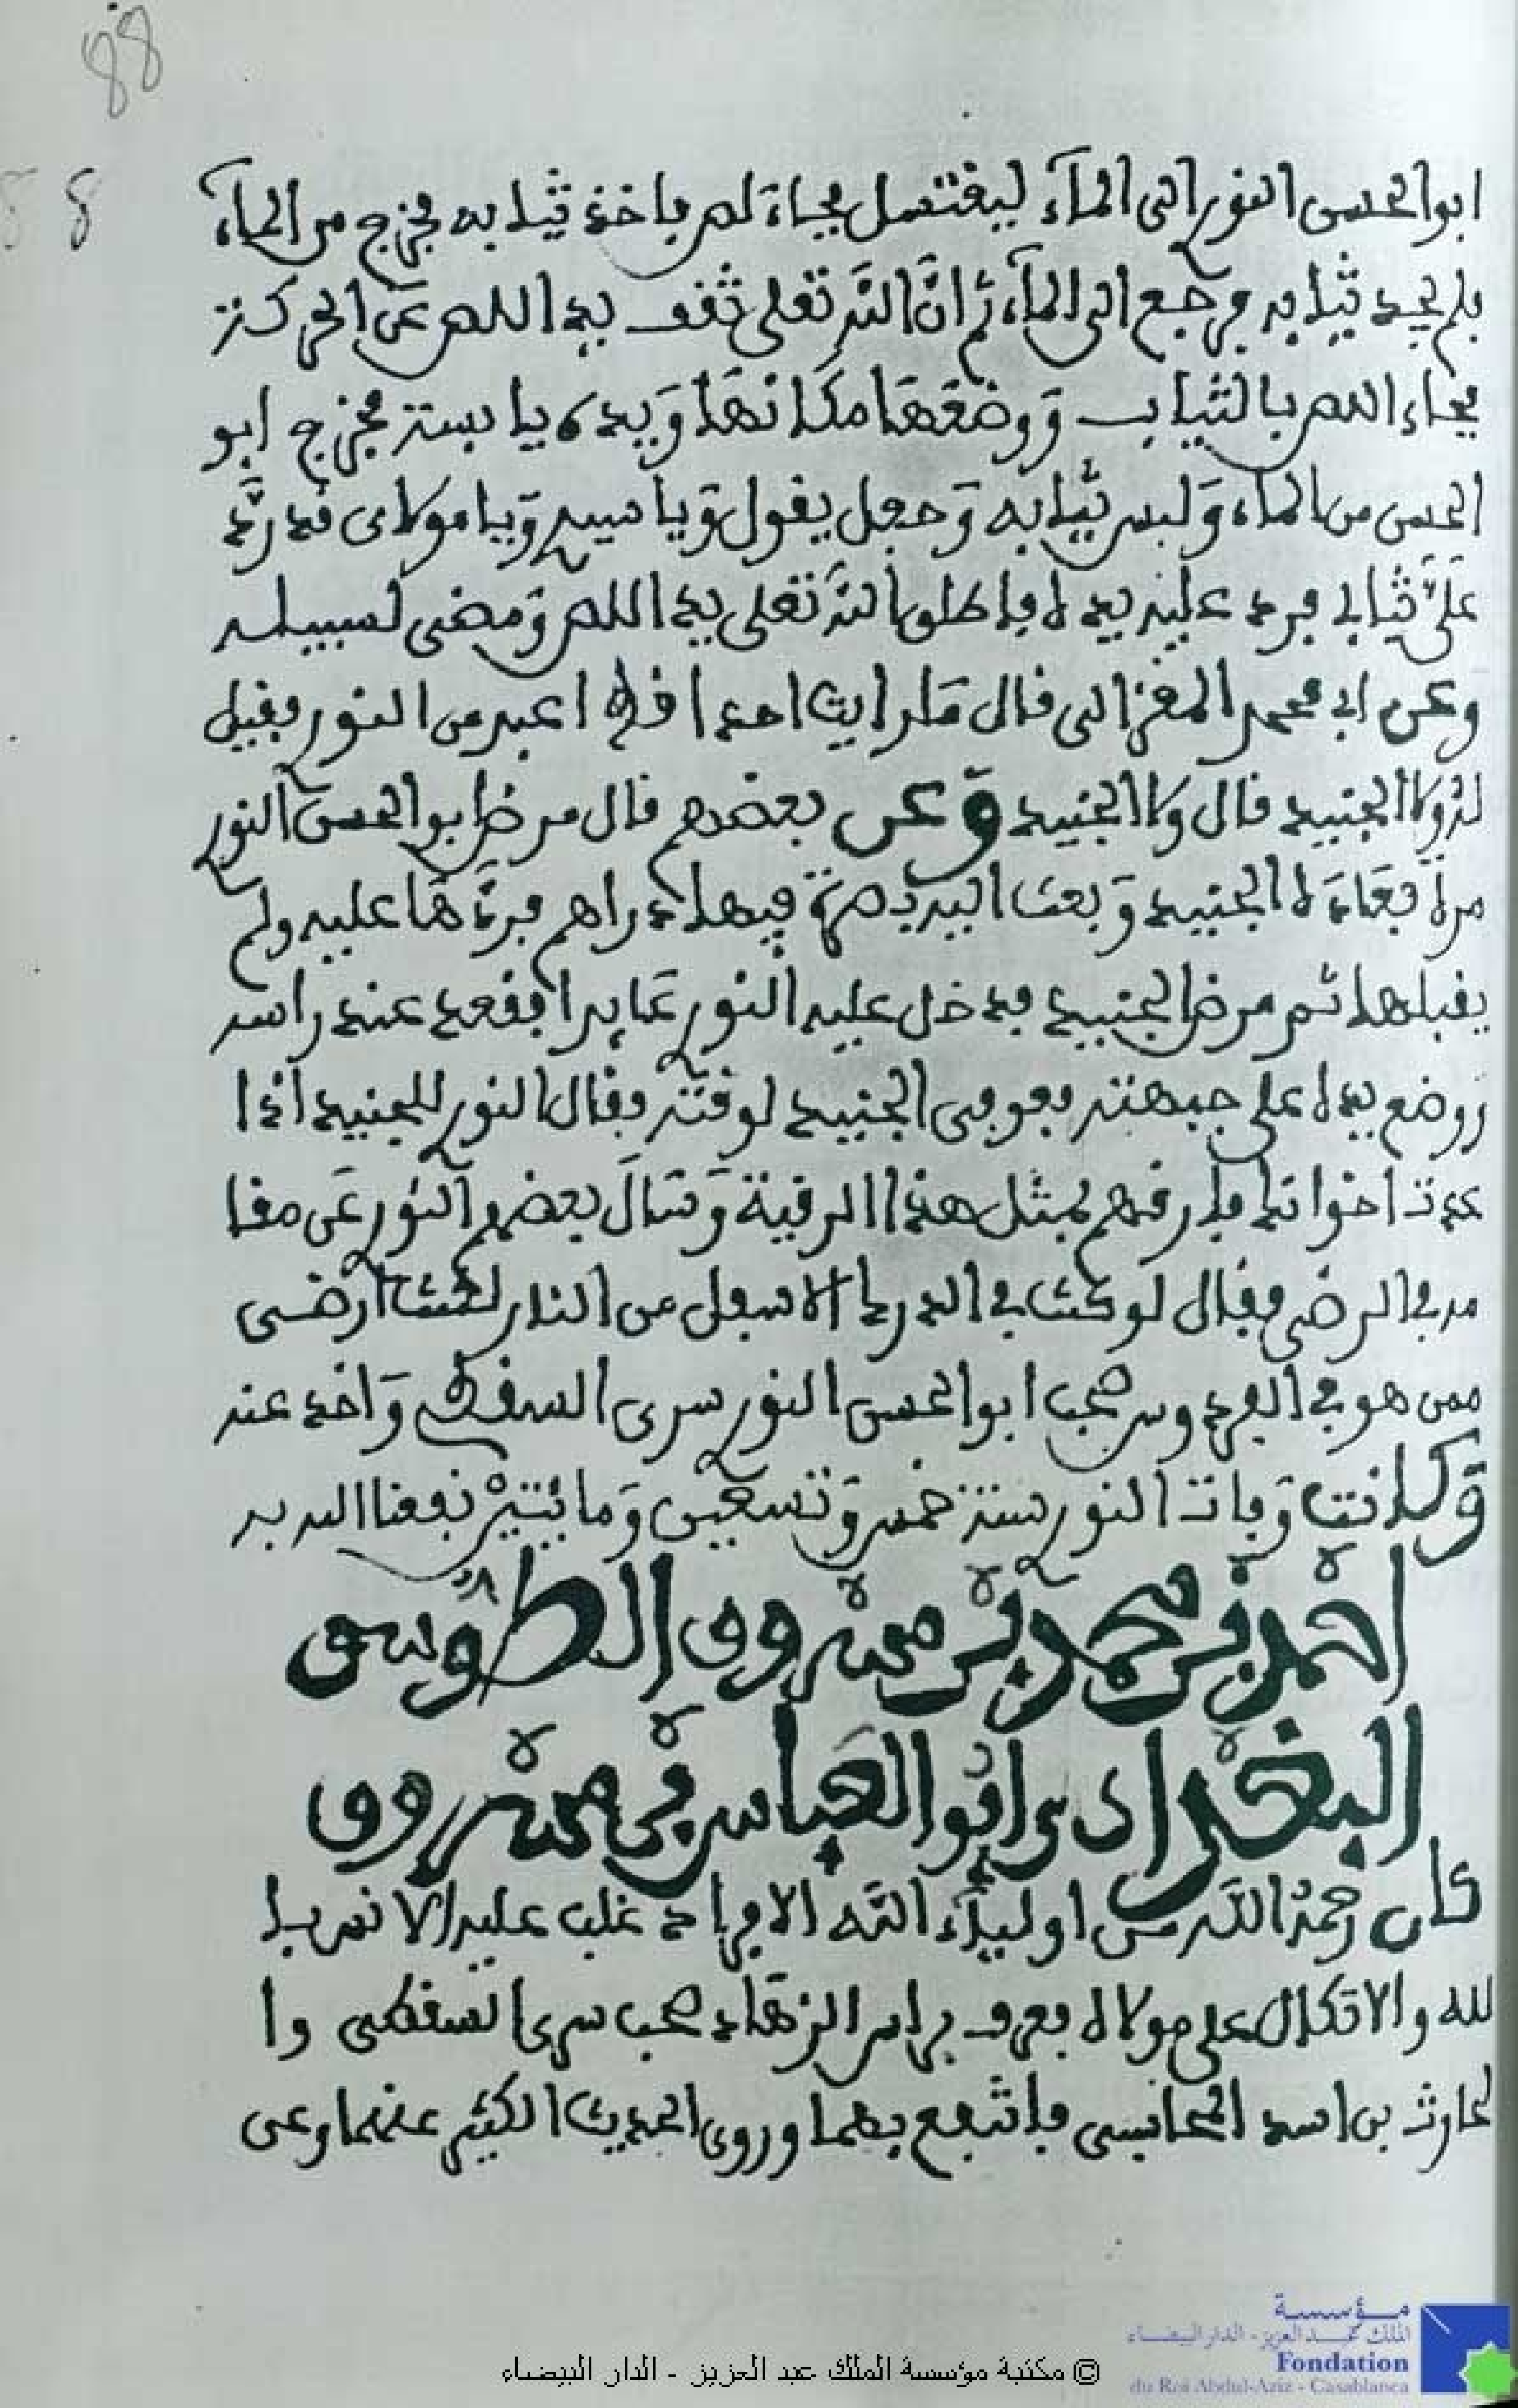 88
8
ابو الحسن النور الى المآء ليغتسل فجاء لص فاخذ ثيابه فخرج من المآء
فلم يجد ثيابه فرجع الى المآء ثم ان الله تعلى ثقف يد اللص عن الحركة
فجاء اللص بالثياب ووضعها مكانها ويده يابسة فخرج ابو
الحسن من المآء ولبس ثيابه وجعل يقول ويا سيدي ويا مولاى قد رد
علي ثيابي فرد عليه يده فاطلق الله تعلى يد اللص ومضى لسبيله
وعن ابي محمد المغزالى قال ما رايت احدا قط اعبد من النور فقيل
له ولا الجنيد قال ولا الجنيد وعن بعضهم قال مرض ابو الحسن النور
مرة فعاده الجنيد وبعث اليه بصرة فيها دراهم فردها عليه ولم
يقبلها ثم مرض الجنيد فدخل عليه النور عايدا فقعد عند راسه
ووضع يده على جبهته فعوفى الجنيد لوقته فقال النور للجنيد اذا
عدت اخوانك فارقهم بمثل هذا الرقية وسال بعضهم النور عن مقا
مه في الرضى فقال لو كنت في الدرك الاسفل من النار لكنت ارضى
ممن هو في الفردوس صحب ابو الحسن النور سرى السقطى واخذ عنه
وكانت وفات النور سنة خمس وتسعين ومائتين نفعنا الله به
احمد بن محمد بن مسروق الطوسى
البغدادى ابو العباس بن مسروق
كان رحمه الله من اوليآء الله الافراد غلب عليه الانس با
لله والاتكال على مولاه فعرف براس الزهاد صحب سرى السقطى وا
لحارث بن اسد المحاسبى فانتفع بهما وروى الحديث الكثير عنهما وعن
مؤسسة
الملك عبد العزيز - الدار البيضاء
Fondation
du Roi Abdul-Aziz - Casablanca
© مكتبة مؤسسة الملك عبد العزيز - الدار البيضاء